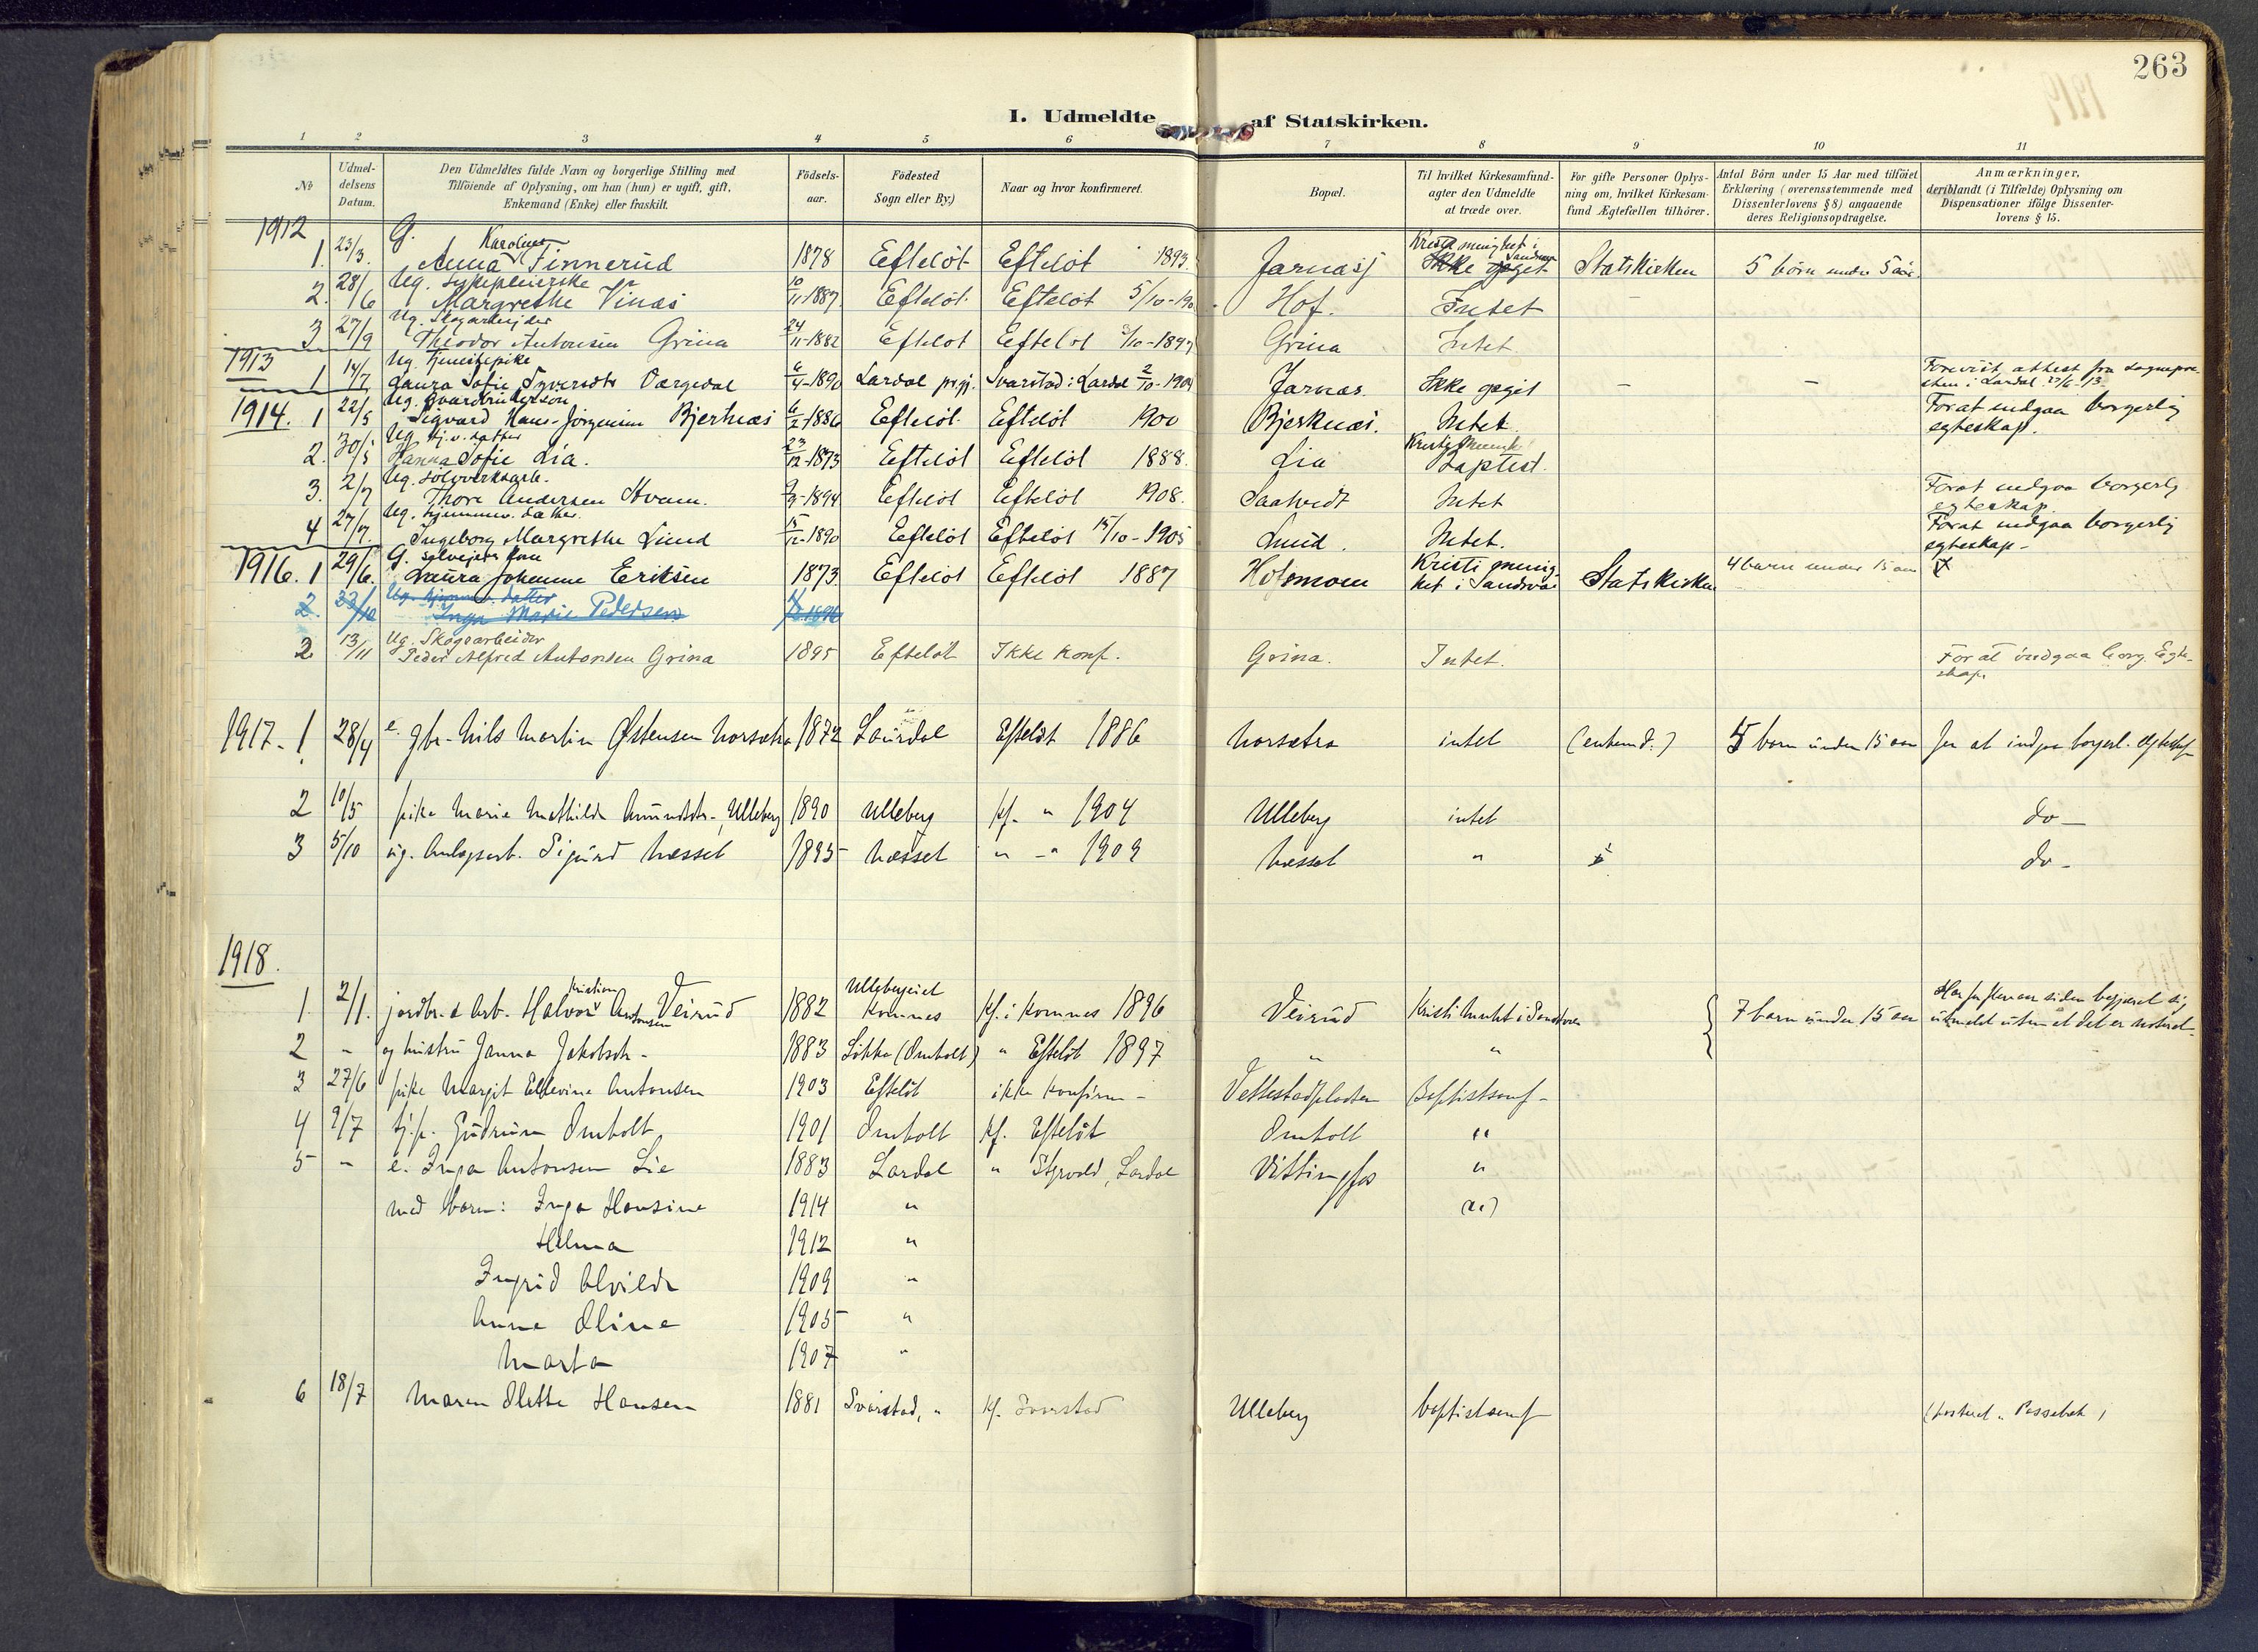 263
I. Udmeldte af Statskirken.
1 2 3 4 5 6 7 8 9 10 11
№
Udmeldelsens Datum.
Den Udmeldtes fulde Navn og borgerlige Stilling med
Tilföiende af Oplysning, om han (hun) er ugift, gift,
Enkemand (Enke) eller fraskilt.
Födselsaar.
Födested
Sogn eller By.)
Naar og hvor konfirmeret.
Bopæl.
Til hvilket Kirkesamfund
agter den Udmeldte
at træde over.
For gifte Personer Oplys-
ning om, hvilket Kirkesam-
fund Ægtefællen tilhörer.
Antal Börn under 15 Aar med tilföiet
Erklæring (overensstemmende med
Dissenterlovens § 8) angaaende
deres Religionsopdragelse.
Anmærkninger,
deriblandt (i Tilfælde) Oplysning om
Dispensationer ifölge Dissenter-
lovens § 15.
1912
1. 23/3. G. Anna Karoline Finnerud 1878 Eftelöt Eftelöt 1893. Jarnæs Kristi menighet i Sandsvær Ikke Statskirken 5 börn under
2. 28/6 Ug. sykepleierske Margrethe Vinæs 10/11-1887 Eftelöt Eftelöt 5/10-190 Hof. Intet
3 27/9 Ug. Skogarbejder Theodor Antonsen Grina 24/11-1882 Eftelöt Eftelöt /10-1897 Grina Intet
1913
1 14/7 Ug. tjenestepike Laura Sofie Syversdtr Værgedal 6/4-1890 Lardal prgj. Svarstad i Lardal 2/10-1904 Jarnæs. Ikke opgit – – Forevist attest fra sognepræsten i Lardal 27/6-13
1914. 1 22/5 Ug. Sigvard Hans-Jörgensen Bjerknæs 6/2-1886 Eftelöt Eftelöt 1900 Bjerknæs. Intet. For at indgaa borgerlig egteskap.
2. 30/5 Ug. hj.v. datter Hanna Sofie Lia. 23/12-1873 Eftelöt Eftelöt 1888 Lia Baptist.
3. 2/7 Ug. sölvverksarb. Thore Andersen Hvam. 9-1894 Eftelöt Eftelöt 1908. Saatvedt Intet For at indgaa borgerlig egteskap.
4 27/7. Ug. hjemmev. datter Ingeborg Margrethe Lund 1890 Eftelöt Eftelöt 15/10-1905 Lund. Intet. For at indgaa borgerlig egteskap -
1916. 1 29/6. G. selvejers kone Laura Johanne Eriksen 1873 Eftelöt Eftelöt 1887 Holmmoen Kristi menighet i Sandsvær Statskirken 4 barn under 15 aar
2. Ug. hjemmev. datter Inga Marie Pedersen
2 13/11 Ug. Skogsarbeider Peder Alfred Antonsen Grina 1895 Eftelöt Ikke konf. Grina. Intet. For at indgaa borg. Egteskap.
1917. 1 28/4 e. gbr. Nils Martin Østensen Norsætra 1872 Laurdal Eftelöt 1886 Norsætra intet (enkemd.) 5 barn under 15 aar for at indgaa borgerl. egteskap
2 10/5 pike Marie Mathilde Amundsdtr., Ulleberg 1890 Ulleberg kf. " 1904 Ulleberg intet do –
3 5/10 ug. Anlægsarb. Sigurd Næsset 1895 Næsset " – " 1909 Næsset " do –
1918.
1. 2/1. jordbr. & Arb. Halvor Kristian Antonsen Veirud 1882 Ullebergeiet Komnes kf. i Komnes 1896 Veirud Kristi Menht i Sandsvær 7 barn under 15 aar Har for flere aar siden begjæret sig utmeldt uten at det er noteret –
2 – og hustru Janna Jakobsdtr – 1883 Likka (Omholt) " Eftelöt 1897 " "
3 27/6 pike Margit Ellevine Antonsen 1903 Eftelöt ikke konfirm – Vettestadpladsen Baptistsamf –
4 9/7 tj.p. Gudrun Omholt 1901 Omholt kf. Eftelöt Omholt "
5 – e. Inga Antonsen Lie 1883 Lardal " Styrvold, Lardal Vittingfos "
med barn: Inga Hansine 1914 "
Helma 1912 "
Ingrid Alvilde 1909 "
Anne Oline 1905 "
Marta 1907 "
6 18/7 Maren Olette Hansen 1881 Svarstad, " kf. Svarstad Ulleberg baptistsamf (postad. Passebæk)